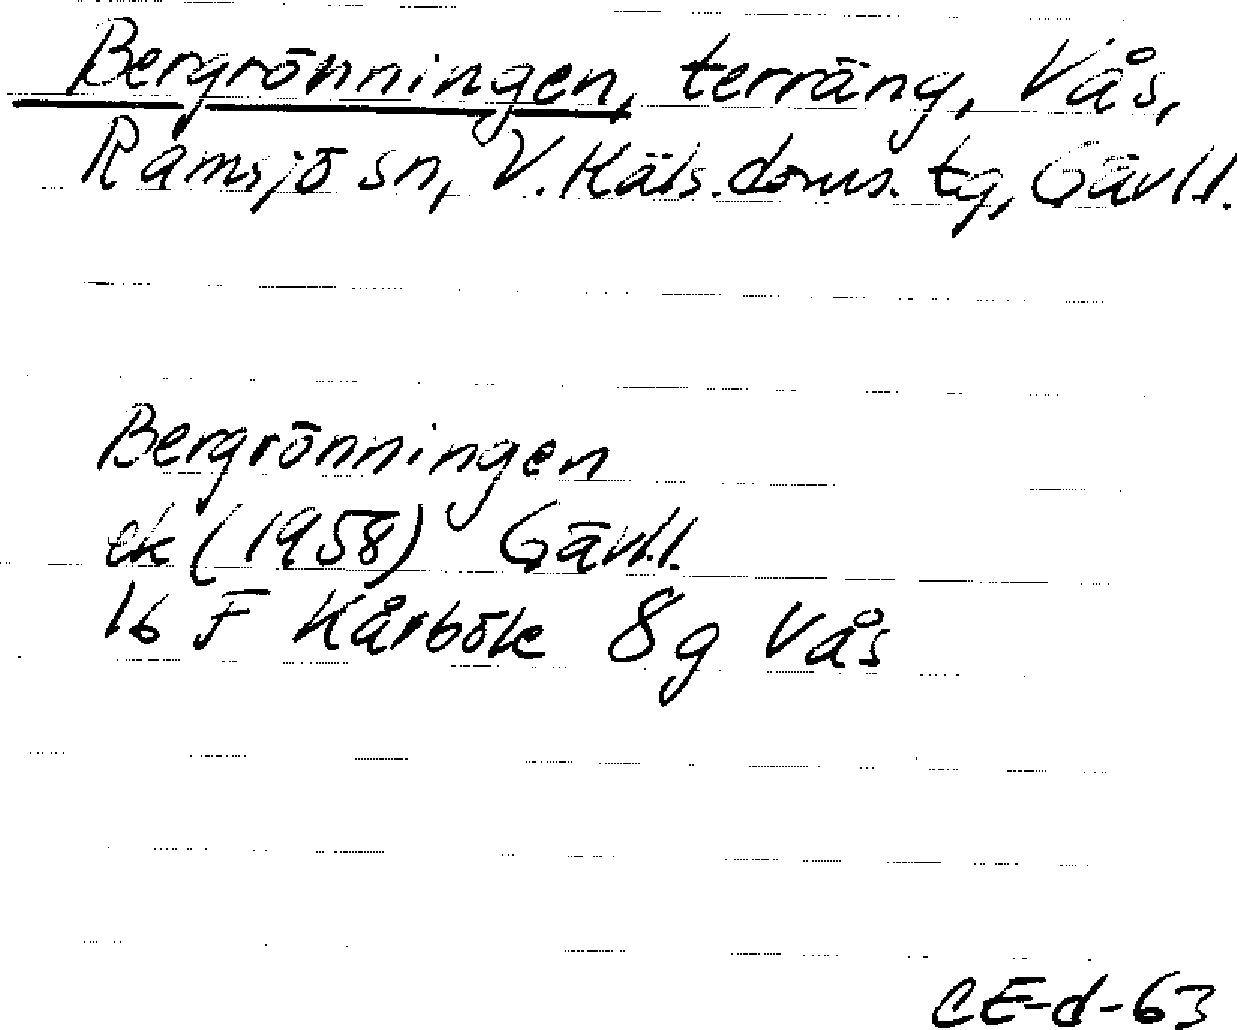 Bergrönningen, terräng, Vås,
Ramsjö sn, V. Häls. doms. tg, Gävl.l.
Bergrönningen
ek (1958) Gävl.l.
16 F Kårböle 8g Vås
CE-d-63